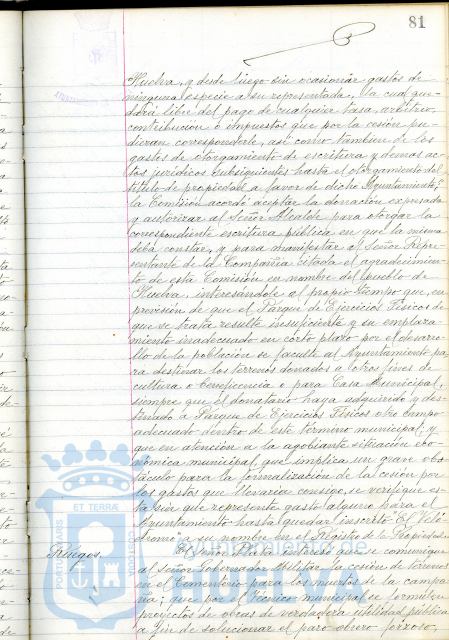 81
Huelva, y desde luego sin ocasionar gastos de
ninguna especie a su representada, la cual que-
dará libre del pago de cualquier tasa, arbitrio,
contribución o impuestos que por la cesión pu-
dieran corresponderle, así como tambien de los
gastos de otorgamiento de escritura y demas ac-
tos jurídicos subsiguientes hasta el otorgamiento del
título de propiedad a favor de dicho Ayuntamiento,"
la Comisión acordó aceptar la donación expresada
y autorizar al Señor Alcalde para otorgar la
correspondiente escritura pública en que la misma
deba constar, y para manifestar al Señor Repre-
sentante de la Compañia citada el agradecimien-
to de esta Comisión en nombre del pueblo de
Huelva, interesándole al propio tiempo que, en
previsión de que el Parque de Ejercicios Físicos de
que se trata resulte insuficiente y su emplaza-
miento inadecuado en corto plazo por el desarro-
llo de la población se faculte al Ayuntamiento pa-
ra destinar los terrenos donados a otros fines de
cultura o beneficencia o para Casa Municipal,
siempre que el donatario haya adquirido y des-
tinado a Parque de Ejercicios Físicos otro campo
adecuado dentro de este término municipal; y
que en atención a la agobiante situación eco-
nómica municipal, que implica un grave obs-
táculo para la formalización de la cesión por
los gastos que llevaria consigo, se verifique es-
ta sin que represente gasto alguno para el
Ayuntamiento hasta quedar inscrito "El Veló-
dromo" a su nombre en el Registro de la Propiedad.
Ruegos.
El Señor Parra interesó que se comunique
al Señor Gobernador Militar la cesión de terrenos
en el Cementerio para los muertos de la campa-
ña; que por el Técnico municipal se formulen
proyectos de obras de verdadera utilidad pública
a fin de solucionar el paro obrero forzoso,
ET TERRÆ
PORTUS MARIS
CUSTODIA
Ayuntamiento de